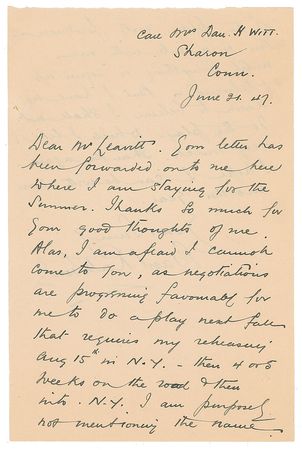 Care Mrs Dan. H Witt.
Sharon
Conn.
June 21. 47.
Dear Mr Leavitt. Your letter has
been forwarded on to me here
where I am staying for the
Summer. Thanks so much for
your good thoughts of me.
Alas, I am afraid I cannot
come to you, as negotiations
are progressing favourably for
me to do a play next fall
that requires my rehearsing
Aug 15th in N.Y. – then 4 or 5
weeks on the road & then
into N.Y. I am purposely
not mentioning the name